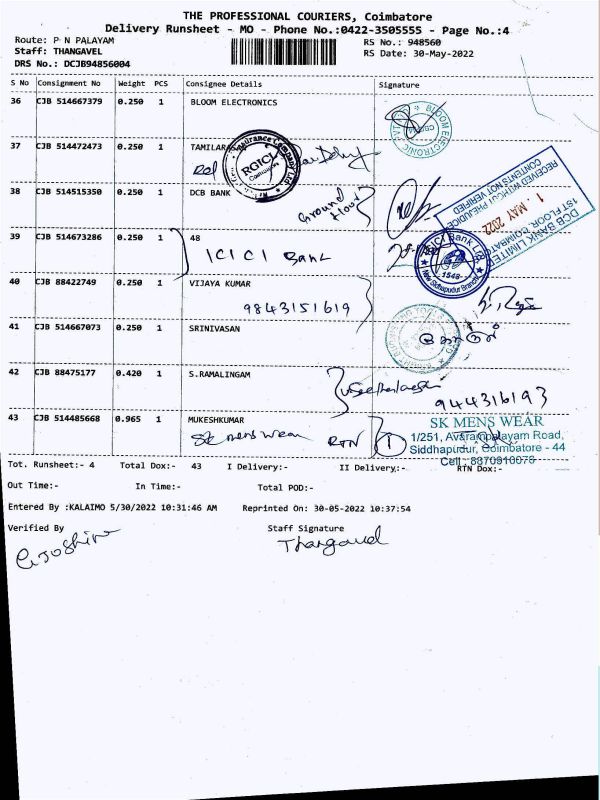 THE PROFESSIONAL COURIERS, Coimbatore
Delivery Runsheet - MO - Phone No.:0422-3505555 - Page No.:4
Route: P N PALAYAM
RS No.: 948560
Staff: THANGAVEL
RS Date: 30-May-2022
DRS No.: DCJB94856004
S No Consignment No Weight PCS Consignee Details Signature
36 CJB 514667379 0.250 1 BLOOM ELECTRONICS
37 CJB 514472473 0.250 1
RGICL
Coimbatore
38 CJB 514515350 0.250 1 DCB BANK
Ground
floor
DCB BANK LIMITED
1ST FLOOR, COIMBATORE
1. MAY 2022
RECEIVED WITHOUT PREJUDICE
CONTENTS NOT VERIFIED
39 CJB 514673286 0.250 1 48
ICICI Bank
ICICI Bank Ltd
New Sidhapudur Branch
40 CJB 88422749 0.250 1 VIJAYA KUMAR
9843151619
41 CJB 514667073 0.250 1 SRINIVASAN
42 CJB 88475177 0.420 1 S.RAMALINGAM
9443161193
43 CJB 514485668 0.965 1 MUKESHKUMAR
SK mens wear RTN 1
SK MENS WEAR
1/251, Avarampalayam Road,
Siddhapudur, Coimbatore - 44
Cell : 8870910078
Tot. Runsheet:- 4 Total Dox:- 43 I Delivery:- II Delivery:- RTN Dox:-
Out Time:- In Time:- Total POD:-
Entered By :KALAIMO 5/30/2022 10:31:46 AM Reprinted On: 30-05-2022 10:37:54
Verified By Staff Signature
Thangavel